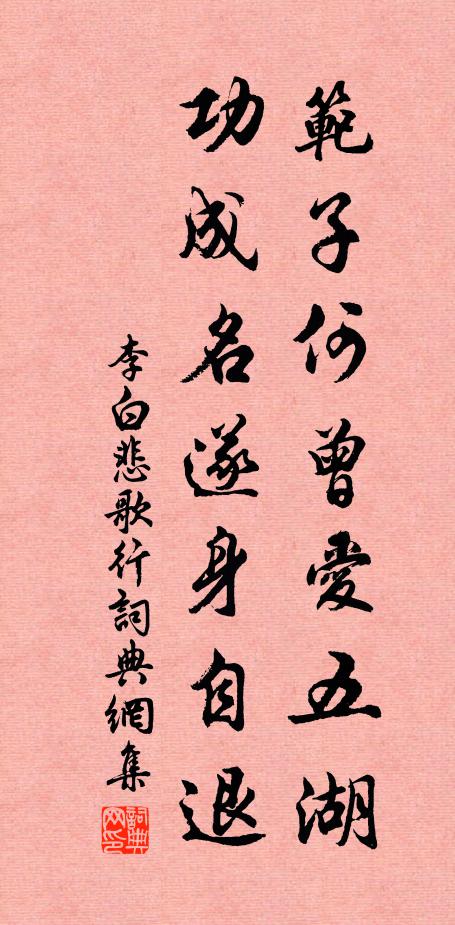 範子何曾愛五湖
功成名遂身自退
李白悲歌行詞典網集
詞典网印